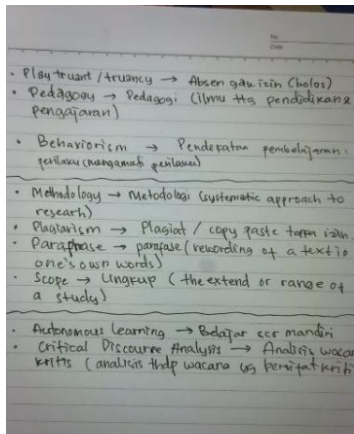 No
Date
• Play truant / truancy → Absen gak izin (bolos)
• Pedagogy → Pedagogi (ilmu ttg pendidikan &
pengajaran)
• Behaviorism → Pendekatan pembelajaran.
perilaku (mengamati perilaku)
• Methodology → Metodologi (systematic approach to
research)
• Plagiarism → Plagiat / copy paste tanpa izin.
• Paraphrase → parafase (rewording of a text io
one's own words)
• Scope → Lingkup ( the extend or range of
a study)
• Autonomous Learning → Belajar scr mandiri
• Critical Discourse Analysis → Analisis wacan
kritis ( analisis thdp wacana yg bersifat kriti